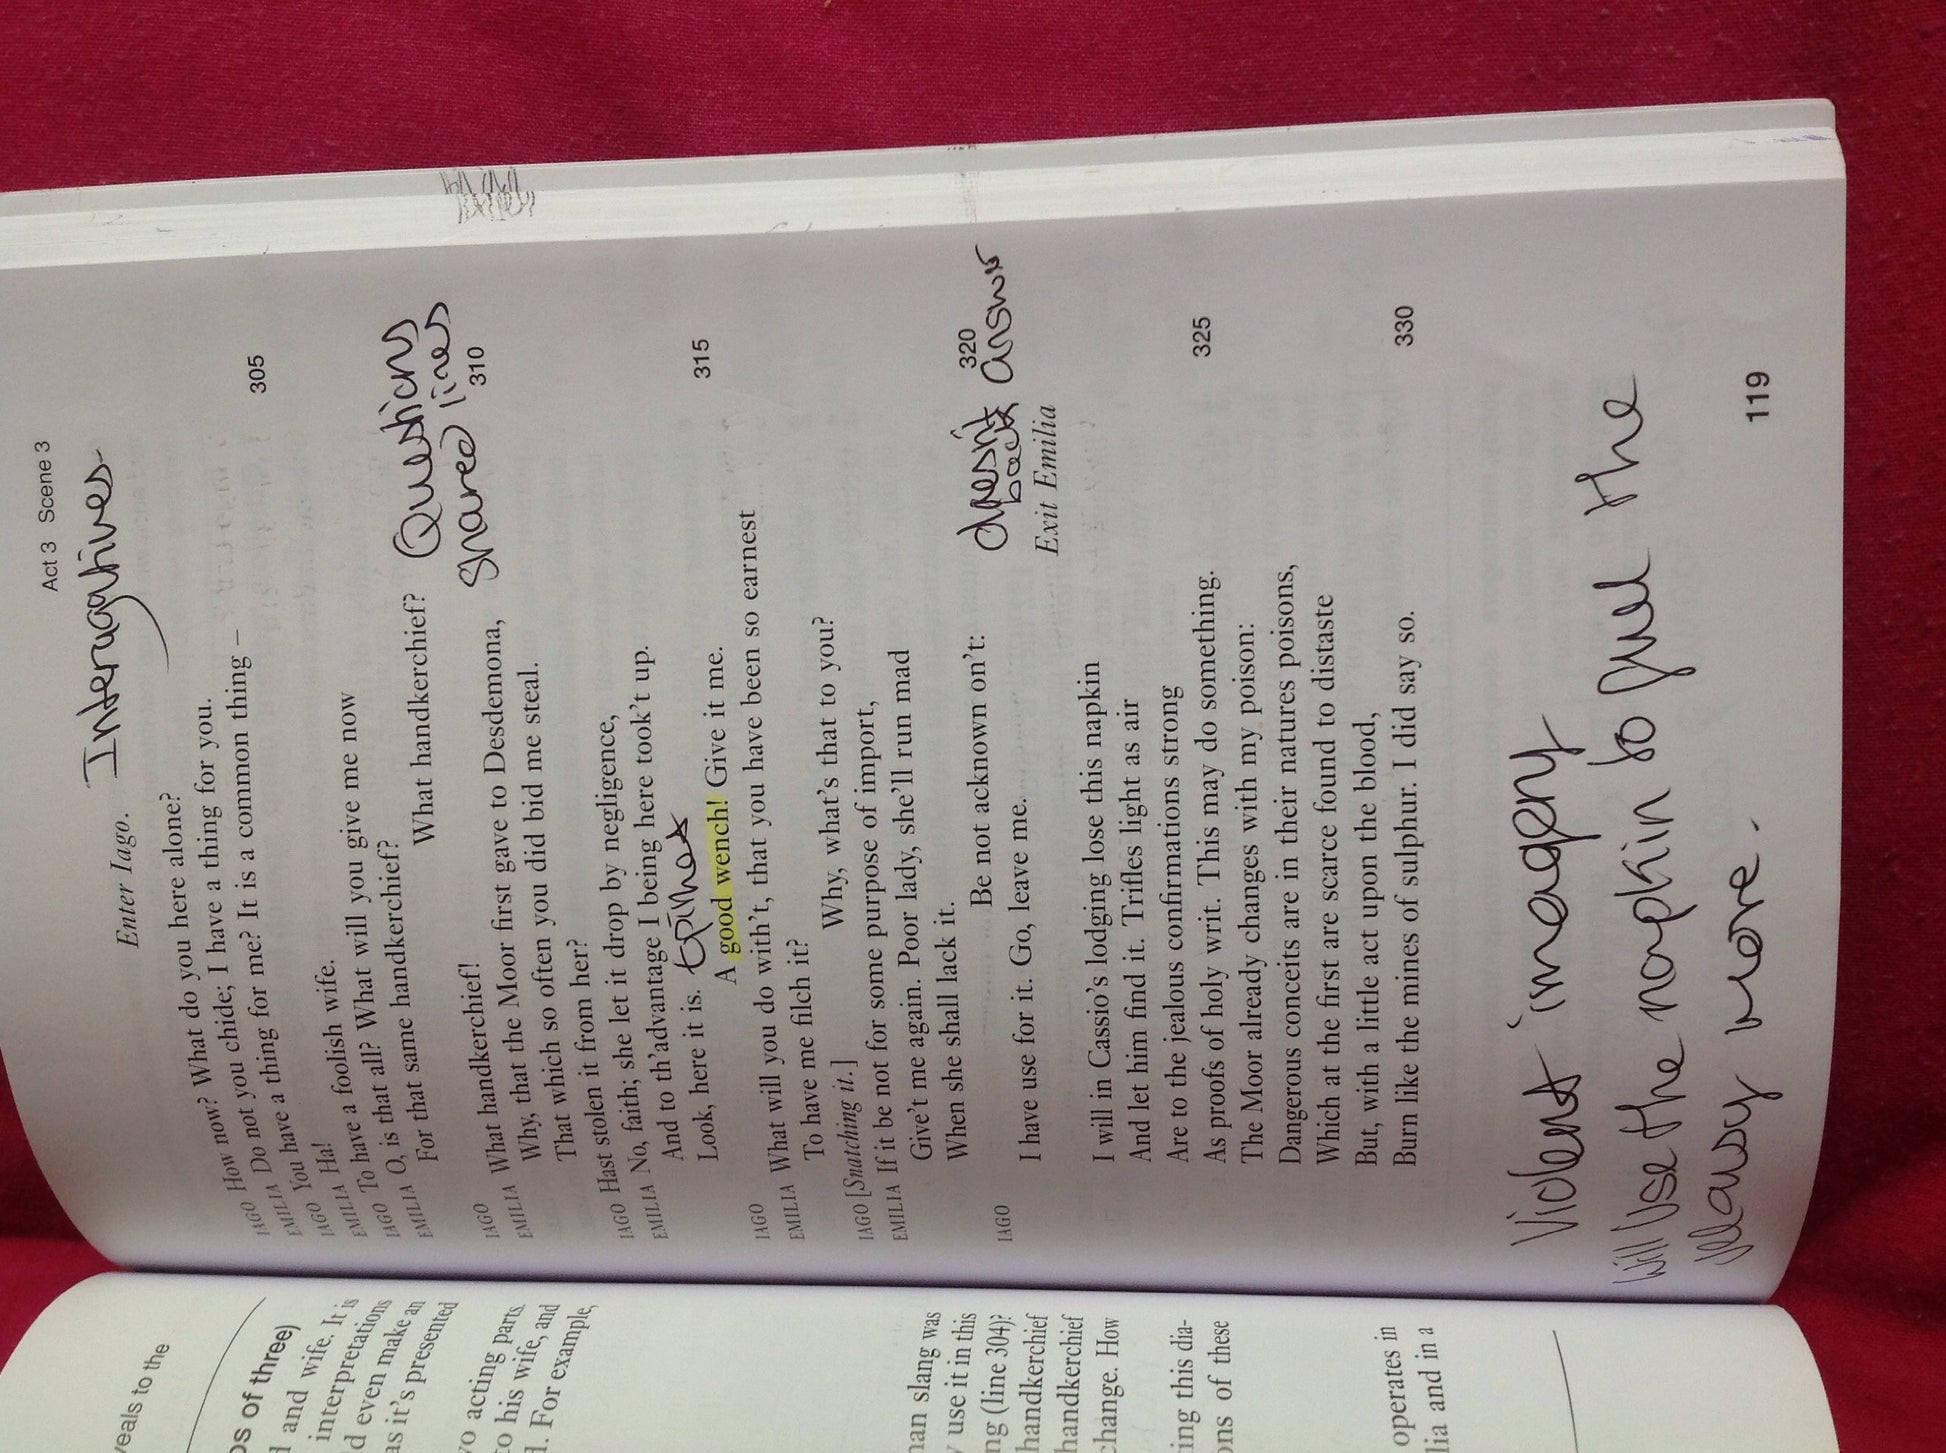 Act 3 Scene 3
Interugatives
Enter Iago.
IAGO How now? What do you here alone?
EMILIA Do not you chide; I have a thing for you.
IAGO You have a thing for me? It is a common thing – 305
EMILIA Ha!
IAGO To have a foolish wife.
EMILIA O, is that all? What will you give me now
For that same handkerchief?
IAGO What handkerchief? Questions
EMILIA What handkerchief! shared lines
Why, that the Moor first gave to Desdemona, 310
That which so often you did bid me steal.
IAGO Hast stolen it from her?
EMILIA No, faith; she let it drop by negligence,
And to th'advantage I being here took't up.
Look, here it is. 315
IAGO A good wench! Give it me.
EMILIA What will you do with't, that you have been so earnest
To have me filch it?
IAGO [Snatching it.] Why, what's that to you?
EMILIA If it be not for some purpose of import,
Give't me again. Poor lady, she'll run mad
When she shall lack it. 320
IAGO Be not acknown on't: doesnt answr back
I have use for it. Go, leave me. Exit Emilia
I will in Cassio's lodging lose this napkin
And let him find it. Trifles light as air
Are to the jealous confirmations strong
As proofs of holy writ. This may do something. 325
The Moor already changes with my poison:
Dangerous conceits are in their natures poisons,
Which at the first are scarce found to distaste
But, with a little act upon the blood,
Burn like the mines of sulphur. I did say so. 330
Violent imagery
will use the napkin to fuel the
jelausy more.
119
veals to the
ps of three)
and wife. It is
interpretations
d even make an
as it's presented
vo acting parts
to his wife, and
d. For example,
man slang was
y use it in this
ng (line 304)?
handkerchief
handkerchief
change. How
ting this dia-
ons of these
operates in
lia and in a